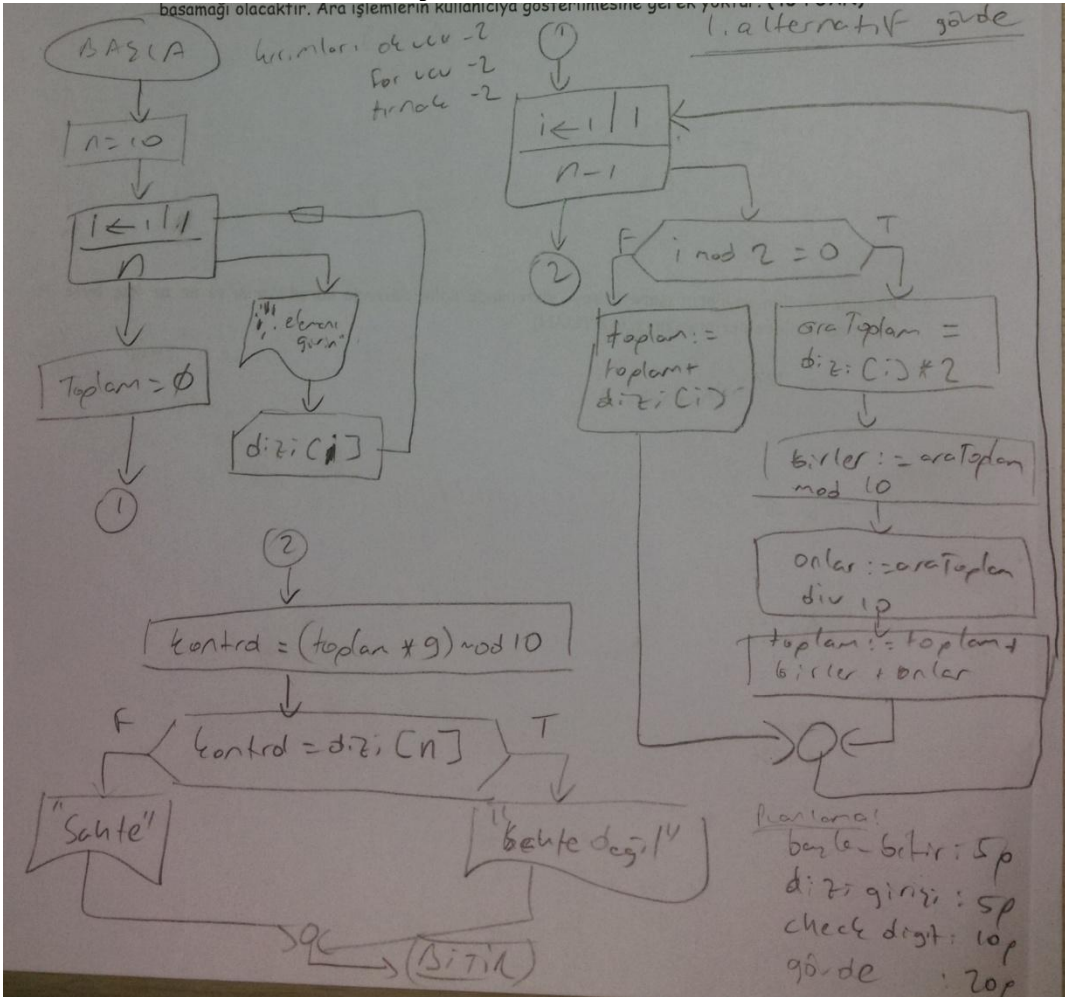 basamağı olacaktır. Ara işlemlerin kullanıcıya gösterilmesine gerek yoktur.
BAŞLA
ok ucu -2
for ucu -2
tırnak -2
n=10
i←1/1
n
"i. elemanı
girin"
dizi[i]
Toplam=Ø
1
1. alternatif gövde
1
i←1/1
n-1
2
i mod 2 = 0
F
T
toplam:=
toplam+
dizi[i]
araToplam =
dizi[i]*2
birler:=araToplam
mod 10
onlar:=araToplam
div 10
toplam:=toplam+
birler+onlar
2
kontrol=(toplam*9)mod10
kontrol=dizi[n]
F
T
"Sahte"
"Sahte değil"
BİTİR
Puanlama:
başla-bitir: 5p
dizi girişi: 5p
check digit: 10p
gövde : 20p